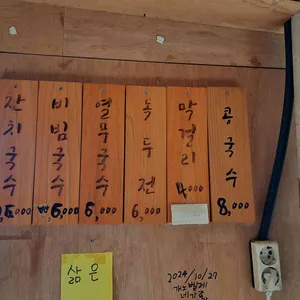 잔치국수
5,000
비빔국수
₩6,000
열무국수
6,000
녹두전
6,000
막걸리
4000
콩국수
8,000
삶은
2024/10/27